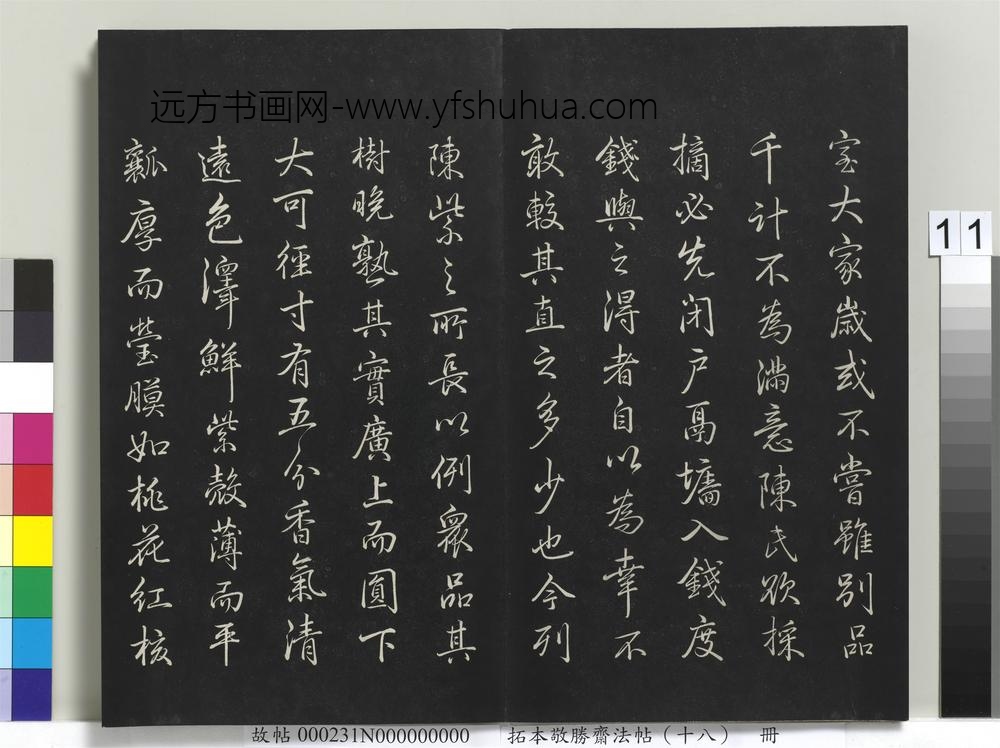 远方书画网-www.yfshuhua.com
室大家歲或不嘗雖別品
千計不為滿意陳氏欲採
摘必先閉戶鬲墻入錢度
錢與之得者自以為幸不
敢較其直之多少也今列
陳紫之所長以例眾品其
樹晚熟其實廣上而圓下
大可徑寸有五分香氣清
遠色澤鮮紫殼薄而平
瓤厚而瑩膜如桃花紅核
11
故帖 000231N000000000 拓本敬勝齋法帖（十八） 冊